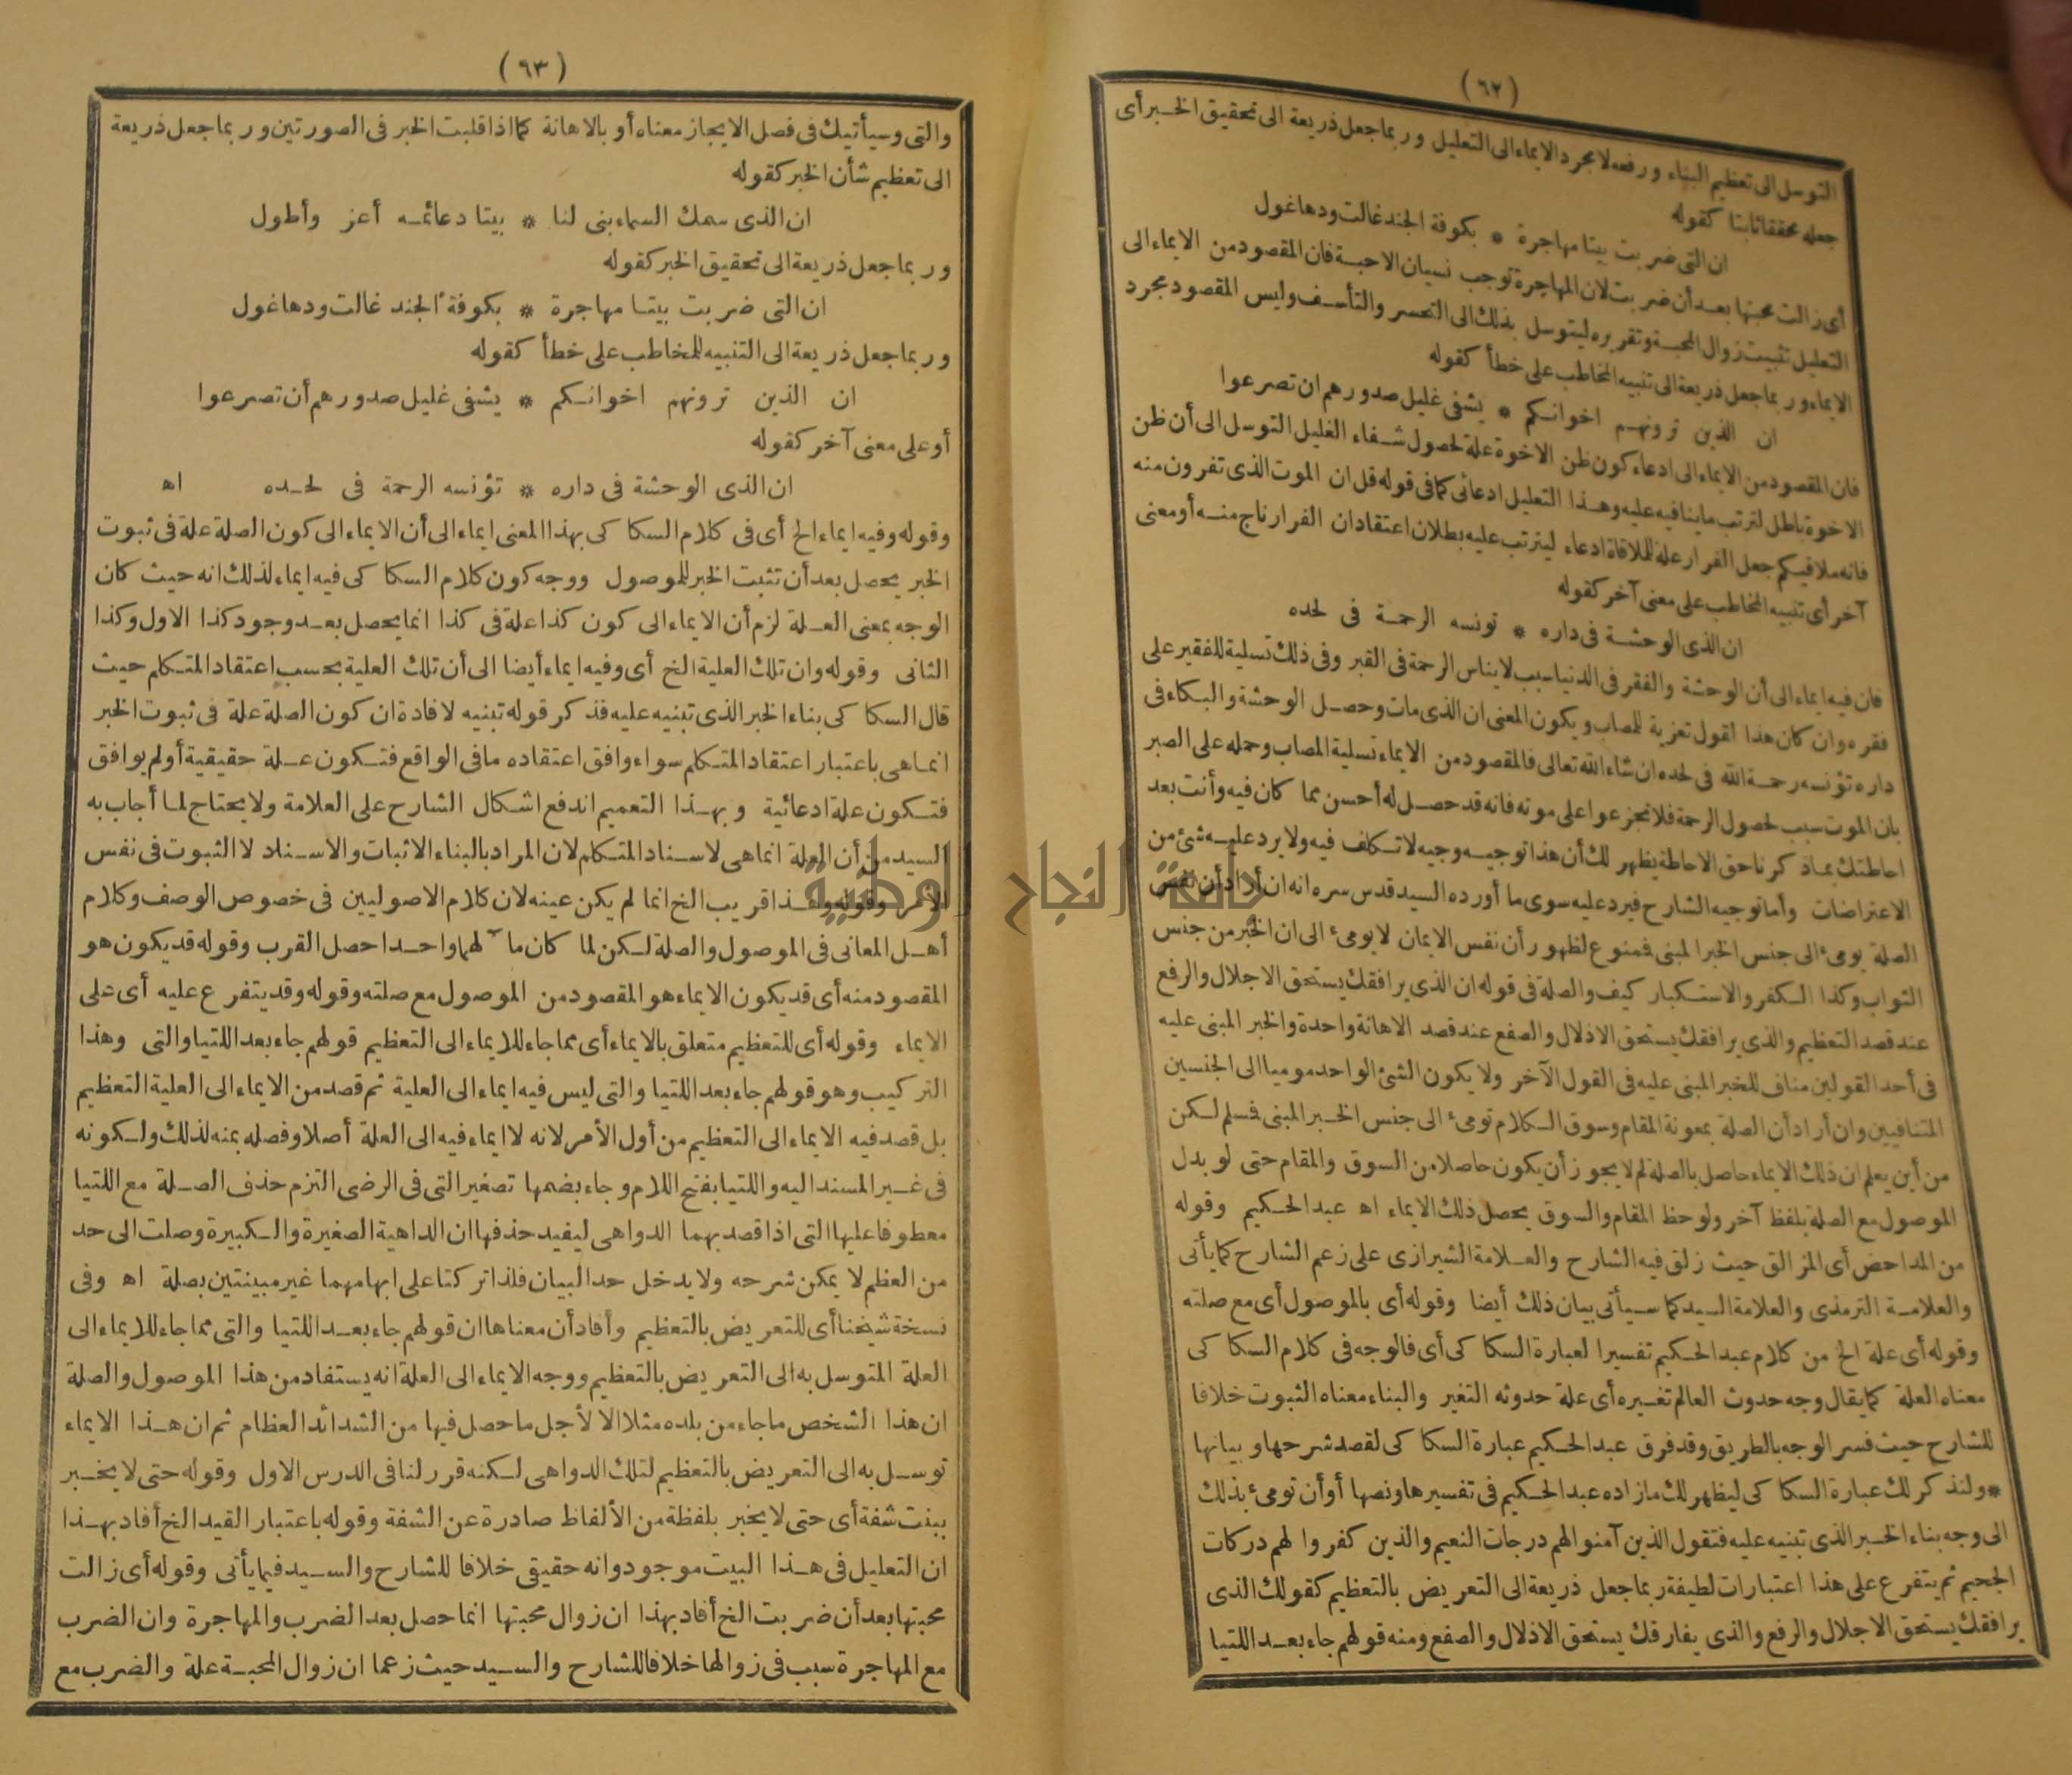 (٦٢)
التوسل الى تعظيم البناء ورفعه لا مجرد الايماء الى التعليل وربما جعل ذريعة الى تحقيق الخبر أى
جعله محققا ثابتا كقوله
ان التى ضربت بيتا مهاجرة * بكوفة الجند غالت ودها غول
أى زالت محبتها بعد أن ضربت لان المهاجرة توجب نسيان الاحبة فان المقصود من الايماء الى
التعليل تثبيت زوال المحبة وتقريره ليتوسل بذلك الى التحسر والتأسف وليس المقصود مجرد
الايماء وربما جعل ذريعة الى تنبيه المخاطب على خطأ كقوله
ان الذين ترونهم اخوانكم * يشفى غليل صدورهم ان تصرعوا
فان المقصود من الايماء الى ادعاء كون ظن الاخوة علة لحصول شفاء الغليل التوسل الى أن ظن
الاخوة باطل لترتب ما ينافيه عليه وهذا التعليل ادعائى كما فى قوله قل ان الموت الذى تفرون منه
فانه ملاقيكم جعل الفرار علة للملاقاة ادعاء ليترتب عليه بطلان اعتقاد ان الفرار ناج منه أو معنى
آخر أى تنبيه المخاطب على معنى آخر كقوله
ان الذى الوحشة فى داره * تونسه الرحمة فى لحده
فان فيه ايماء الى أن الوحشة والفقر فى الدنيا سبب لايناس الرحمة فى القبر وفى ذلك تسلية للفقير على
فقره وان كان هذا القول تعزية للمصاب ويكون المعنى ان الذى مات وحصل الوحشة والبكاء فى
داره تؤنسه رحمة الله فى لحده ان شاء الله تعالى فالمقصود من الايماء تسلية المصاب وحمله على الصبر
بان الموت سبب لحصول الرحمة فلا تجزعوا على موته فانه قد حصل له أحسن مما كان فيه وأنت بعد
احاطتك بما ذكرنا حق الاحاطة يظهر لك أن هذا توجيه وجيه لا تكلف فيه ولا يرد عليه شئ من
الاعتراضات وأما توجيه الشارح فيرد عليه سوى ما أورده السيد قدس سره انه ان أراد أن نفس
الصلة يومىء الى جنس الخبر المبنى فممنوع لظهور أن نفس الايمان لا يومىء الى ان الخبر من جنس
الثواب وكذا الكفر والاستكبار كيف والصلة فى قوله ان الذى يرافقك يستحق الاجلال والرفع
عند قصد التعظيم والذى يرافقك يستحق الاذلال والصفع عند قصد الاهانة واحدة والخبر المبنى عليه
فى أحد القولين مناف للخبر المبنى عليه فى القول الآخر ولا يكون الشئ الواحد موميا الى الجنسين
المتنافيين وان أراد أن الصلة بمعونة المقام وسوق الكلام تومىء الى جنس الخبر المبنى فسلم لكن
من أين يعلم ان ذلك الايماء حاصل بالصلة لم لا يجوز أن يكون حاصلا من السوق والمقام حتى لو بدل
الموصول مع الصلة بلفظ آخر ولوحظ المقام والسوق يحصل ذلك الايماء اه عبد الحكيم وقوله
من المداحض أى المزالق حيث زلق فيه الشارح والعلامة الشيرازى على زعم الشارح كما يأتى
والعلامة الترمذى والعلامة السيد كما سيأتى بيان ذلك أيضا وقوله أى بالموصول أى مع صلته
وقوله أى علة الخ من كلام عبد الحكيم تفسيرا لعبارة السكاكى أى فالوجه فى كلام السكاكى
معناه العلة كما يقال وجه حدوث العالم تغيره أى علة حدوثه التغير والبناء معناه الثبوت خلافا
للشارح حيث فسر الوجه بالطريق وقد فرق عبد الحكيم عبارة السكاكى لقصد شرحها وبيانها
* ولنذكر لك عبارة السكاكى ليظهر لك ما زاده عبد الحكيم فى تفسيرها ونصها أو أن تومىء بذلك
الى وجه بناء الخبر الذى تبنيه عليه فتقول الذين آمنوا لهم درجات النعيم والذين كفروا لهم دركات
الجحيم ثم يتفرع على هذا اعتبارات لطيفة ربما جعل ذريعة الى التعريض بالتعظيم كقولك الذى
يرافقك يستحق الاجلال والرفع والذى يفارقك يستحق الاذلال والصفع ومنه قولهم جاء بعد اللتيا
(٦٣)
والتى وسيأتيك فى فصل الايجاز معناه أو بالاهانة كما اذا قلبت الخبر فى الصورتين وربما جعل ذريعة
الى تعظيم شأن الخبر كقوله
ان الذى سمك السماء بنى لنا * بيتا دعائمه أعز وأطول
وربما جعل ذريعة الى تحقيق الخبر كقوله
ان التى ضربت بيتا مهاجرة * بكوفة الجند غالت ودها غول
وربما جعل ذريعة الى التنبيه للمخاطب على خطأ كقوله
ان الذين ترونهم اخوانكم * يشفى غليل صدورهم أن تصرعوا
أو على معنى آخر كقوله
ان الذى الوحشة فى داره * تؤنسه الرحمة فى لحده اه
وقوله وفيه ايماء الخ أى فى كلام السكاكى بهذا المعنى ايماء الى أن الايماء الى كون الصلة علة فى ثبوت
الخبر يحصل بعد أن تثبت الخبر للموصول ووجه كون كلام السكاكى فيه ايماء لذلك انه حيث كان
الوجه بمعنى العلة لزم أن الايماء الى كون كذا علة فى كذا انما يحصل بعد وجود كذا الاول وكذا
الثانى وقوله وان تلك العلية الخ أى وفيه ايماء أيضا الى أن تلك العلية بحسب اعتقاد المتكلم حيث
قال السكاكى بناء الخبر الذى تبنيه عليه فذكر قوله تبنيه لافادة ان كون الصلة علة فى ثبوت الخبر
انما هى باعتبار اعتقاد المتكلم سواء وافق اعتقاده ما فى الواقع فتكون علة حقيقية أو لم يوافق
فتكون علة ادعائية وبهذا التعميم اندفع اشكال الشارح على العلامة ولا يحتاج لما أجاب به
السيد من أن العلة انما هى لاسناد المتكلم لان المراد بالبناء الاثبات والاسناد لا الثبوت فى نفس
الأمر وقوله وهذا قريب الخ انما لم يكن عينه لان كلام الاصوليين فى خصوص الوصف وكلام
أهل المعانى فى الموصول والصلة لكن لما كان مآلهما واحدا حصل القرب وقوله قد يكون هو
المقصود منه أى قد يكون الايماء هو المقصود من الموصول مع صلته وقوله وقد يتفرع عليه أى على
الايماء وقوله أى للتعظيم متعلق بالايماء أى مما جاء للايماء الى التعظيم قولهم جاء بعد اللتيا والتى وهذا
التركيب وهو قولهم جاء بعد اللتيا والتى ليس فيه ايماء الى العلية ثم قصد من الايماء الى العلية التعظيم
بل قصد فيه الايماء الى التعظيم من أول الأمر لانه لا ايماء فيه الى العلة أصلا وفصله بمنه لذلك ولكونه
فى غير المسند اليه واللتيا بفتح اللام وجاء بضمها تصغير التى فى الرضى التزم حذف الصلة مع اللتيا
معطوفا عليها التى اذا قصد بهما الدواهى ليفيد حذفها ان الداهية الصغيرة والكبيرة وصلت الى حد
من العظم لا يمكن شرحه ولا يدخل حد البيان فلذا تركتا على ابهامهما غير مبينتين بصلة اه وفى
نسخة شيخنا أى للتعريض بالتعظيم وأفاد أن معناها ان قولهم جاء بعد اللتيا والتى مما جاء للايماء الى
العلة المتوسل به الى التعريض بالتعظيم ووجه الايماء الى العلة انه يستفاد من هذا الموصول والصلة
ان هذا الشخص ما جاء من بلده مثلا الا لأجل ما حصل فيها من الشدائد العظام ثم ان هذا الايماء
توسل به الى التعريض بالتعظيم لتلك الدواهى لكنه قرر لنا فى الدرس الاول وقوله حتى لا يخبر
ببنت شفة أى حتى لا يخبر بلفظة من الألفاظ صادرة عن الشفة وقوله باعتبار القيد الخ أفاد بهذا
ان التعليل فى هذا البيت موجود وانه حقيقى خلافا للشارح والسيد فيما يأتى وقوله أى زالت
محبتها بعد أن ضربت الخ أفاد بهذا ان زوال محبتها انما حصل بعد الضرب والمهاجرة وان الضرب
مع المهاجرة سبب فى زوالها خلافا للشارح والسيد حيث زعما ان زوال المحبة علة والضرب مع
جامعة النجاح الوطنية